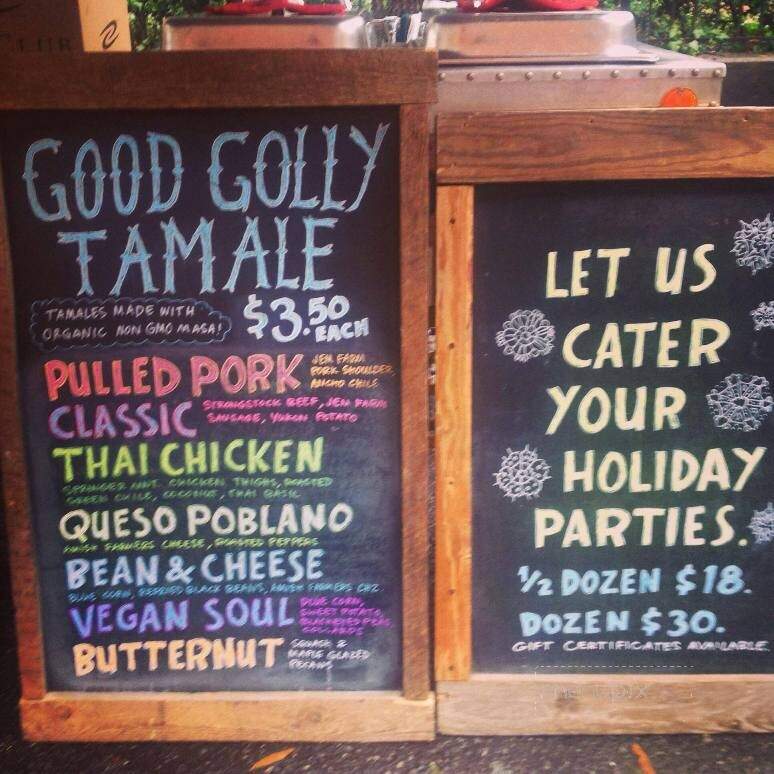 GOOD GOLLY
TAMALE
TAMALES MADE WITH
ORGANIC NON GMO MASA!
$3.50
EACH
PULLED PORK
JEM FARM
PORK SHOULDER,
ANCHO CHILE
CLASSIC
STRONGSTOCK BEEF, JEM FARM
SAUSAGE, YUKON POTATO
THAI CHICKEN
SPRINGER MNT. CHICKEN THIGHS, ROASTED
GREEN CHILE, COCONUT, THAI BASIL
QUESO POBLANO
AMISH FARMERS CHEESE, ROASTED PEPPERS
BEAN & CHEESE
BLUE CORN, REFRIED BLACK BEANS, AMISH FARMERS CHZ.
VEGAN SOUL
BLUE CORN,
SWEET POTATO,
BLACKEYED PEAS,
COLLARDS
BUTTERNUT
SQUASH &
MAPLE GLAZED
PECANS
LET US
CATER
YOUR
HOLIDAY
PARTIES.
1/2 DOZEN $18.
DOZEN $30.
GIFT CERTIFICATES AVAILABLE